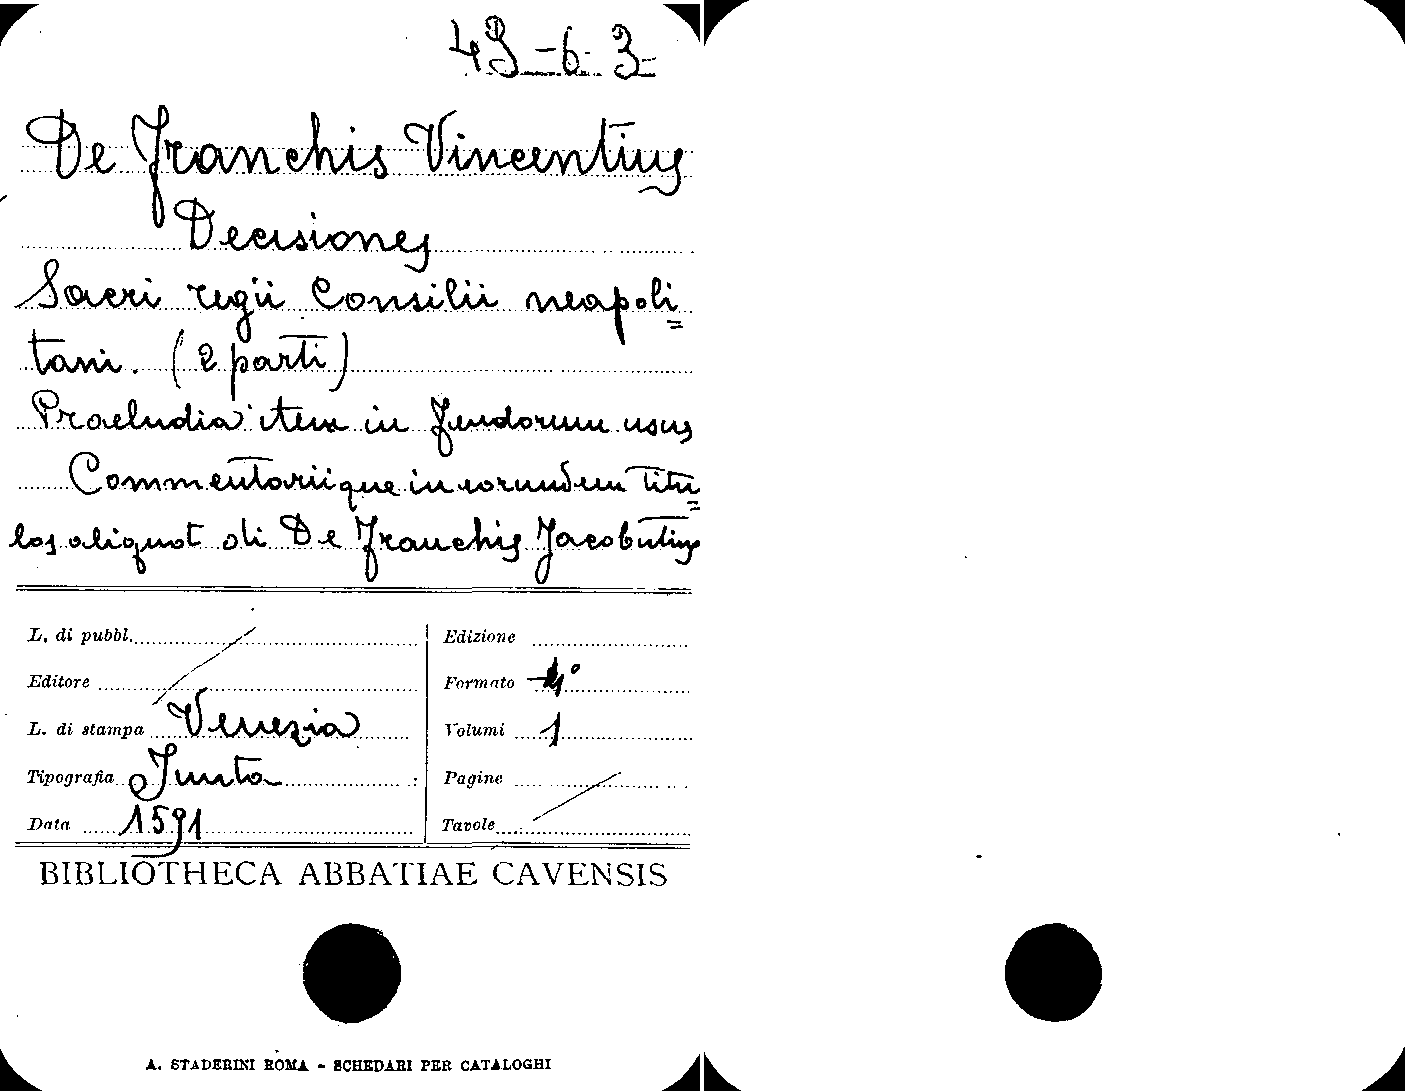 43-6-3
De Franchis Vincentius
Decisiones
Sacri regii Consilii neapoli=
tani. (2 parti)
Praeludia item in feudorum usus
Commentariique in eorundem titu=
los aliquot di De Franchis Jacobutius
L. di pubbl.
Edizione
Editore
Formato 4°
L. di stampa Venezia
Volumi 1
Tipografia Junta
Pagine
Data 1591
Tavole
BIBLIOTHECA ABBATIAE CAVENSIS
A. STADERINI ROMA - SCHEDARI PER CATALOGHI